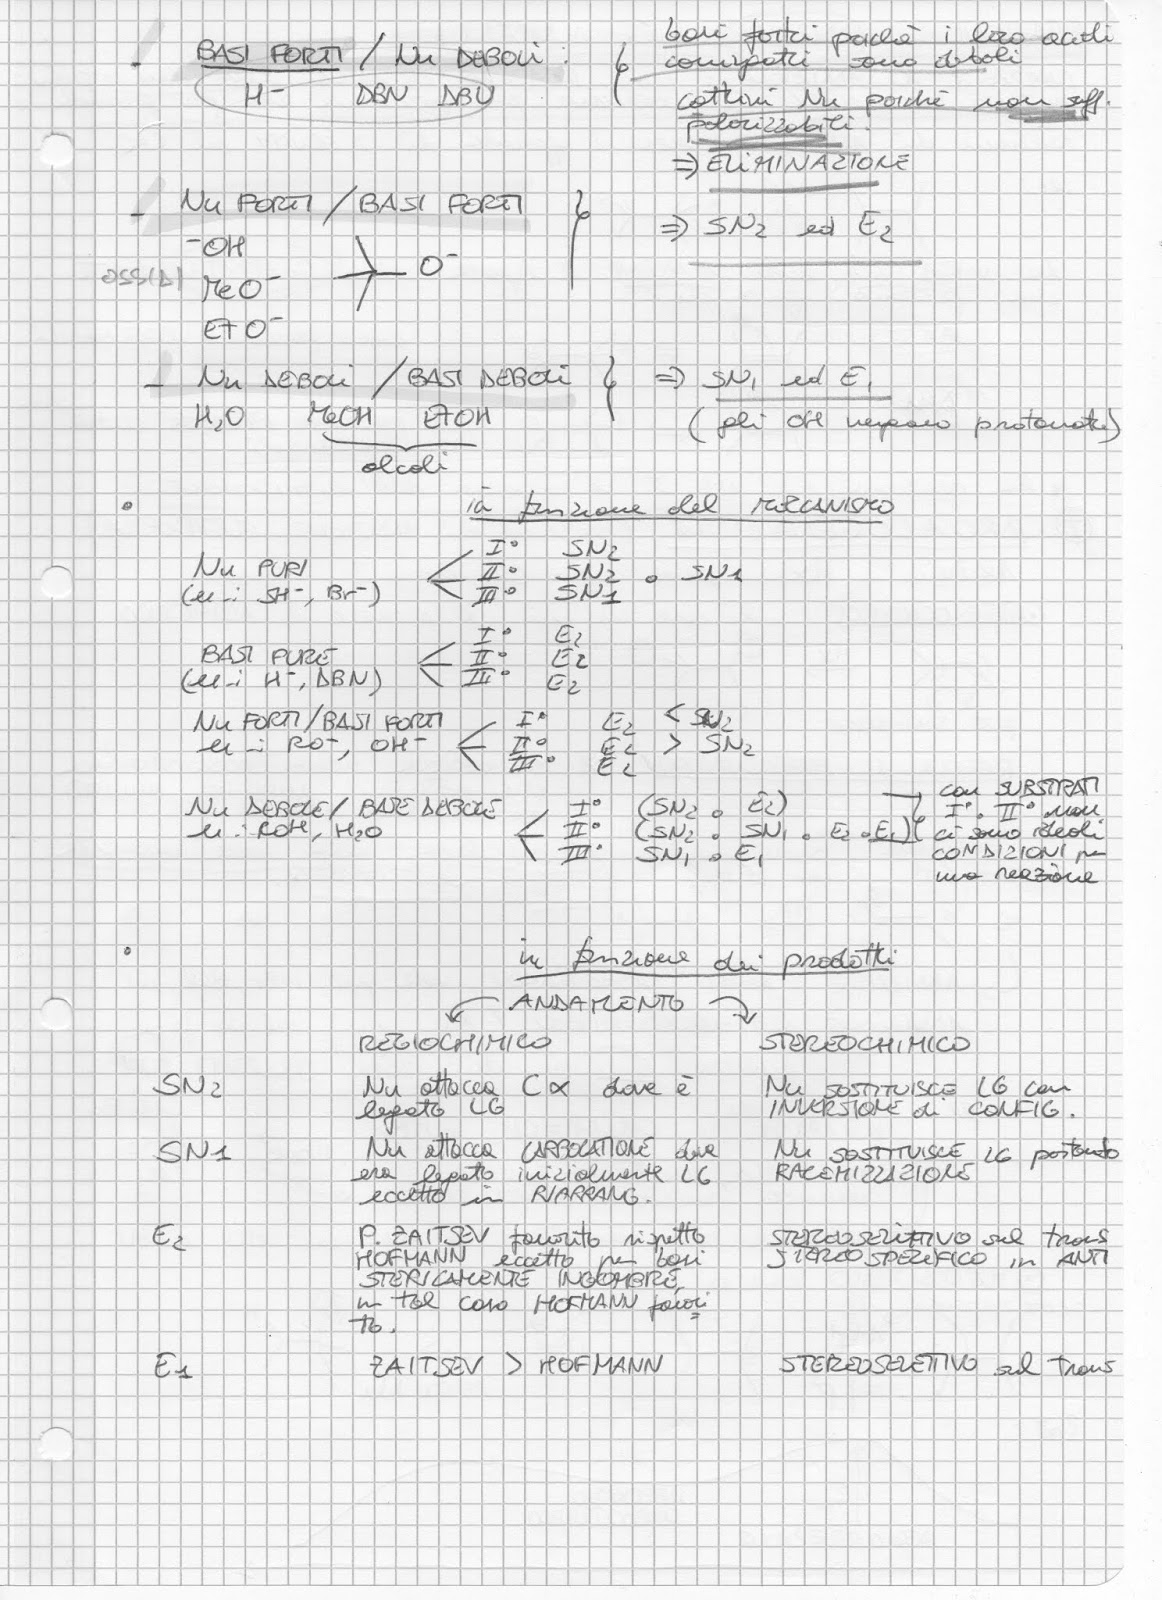 - BASI FORTI / Nu DEBOLI :
H⁻ DBN DBU
basi forti poichè i loro acidi
coniugati sono deboli
cattivi Nu poichè non suff.
polarizzabili.
⇒ ELIMINAZIONE
- Nu FORTI / BASI FORTI
⇒ SN2 ed E2
⁻OH
OSSIDI
MeO⁻
O⁻
EtO⁻
- Nu DEBOLI / BASI DEBOLI ⇒ SN1 ed E1
H2O MeOH EtOH
(gli OH vengono protonati)
alcoli
• in funzione del MECCANISMO
Nu PURI
(SH⁻, Br⁻)
I° SN2
II° SN2 o SN1
III° SN1
BASI PURE
(H⁻, DBN)
I° E2
II° E2
III° E2
Nu FORTI/BASI FORTI
RO⁻, OH⁻
I° E2 < SN2
II° E2 > SN2
III° E2
Nu DEBOLE/BASE DEBOLE
ROH, H2O
I° (SN2 o E2)
II° (SN2 o SN1 o E2 o E1)
III° SN1 o E1
con SUBSTRATI
I° II° non
ci sono ideali
CONDIZIONI per
una reazione
• in funzione dei prodotti
ANDAMENTO
REGIOCHIMICO STEREOCHIMICO
SN2
Nu attacca Cα dove è
legato LG
Nu SOSTITUISCE LG con
INVERSIONE di CONFIG.
SN1
Nu attacca CARBOCATIONE dove
era legato inizialmente LG
eccetto in RIARRANG.
Nu SOSTITUISCE LG portando
RACEMIZZAZIONE
E2
P. ZAITSEV favorito rispetto
HOFMANN eccetto per basi
STERICAMENTE INGOMBRE,
in tal caso HOFMANN favori
to.
STEREOSELETTIVO sul trans
STEREOSPECIFICO in ANTI
E1
ZAITSEV > HOFMANN
STEREOSELETTIVO sul trans